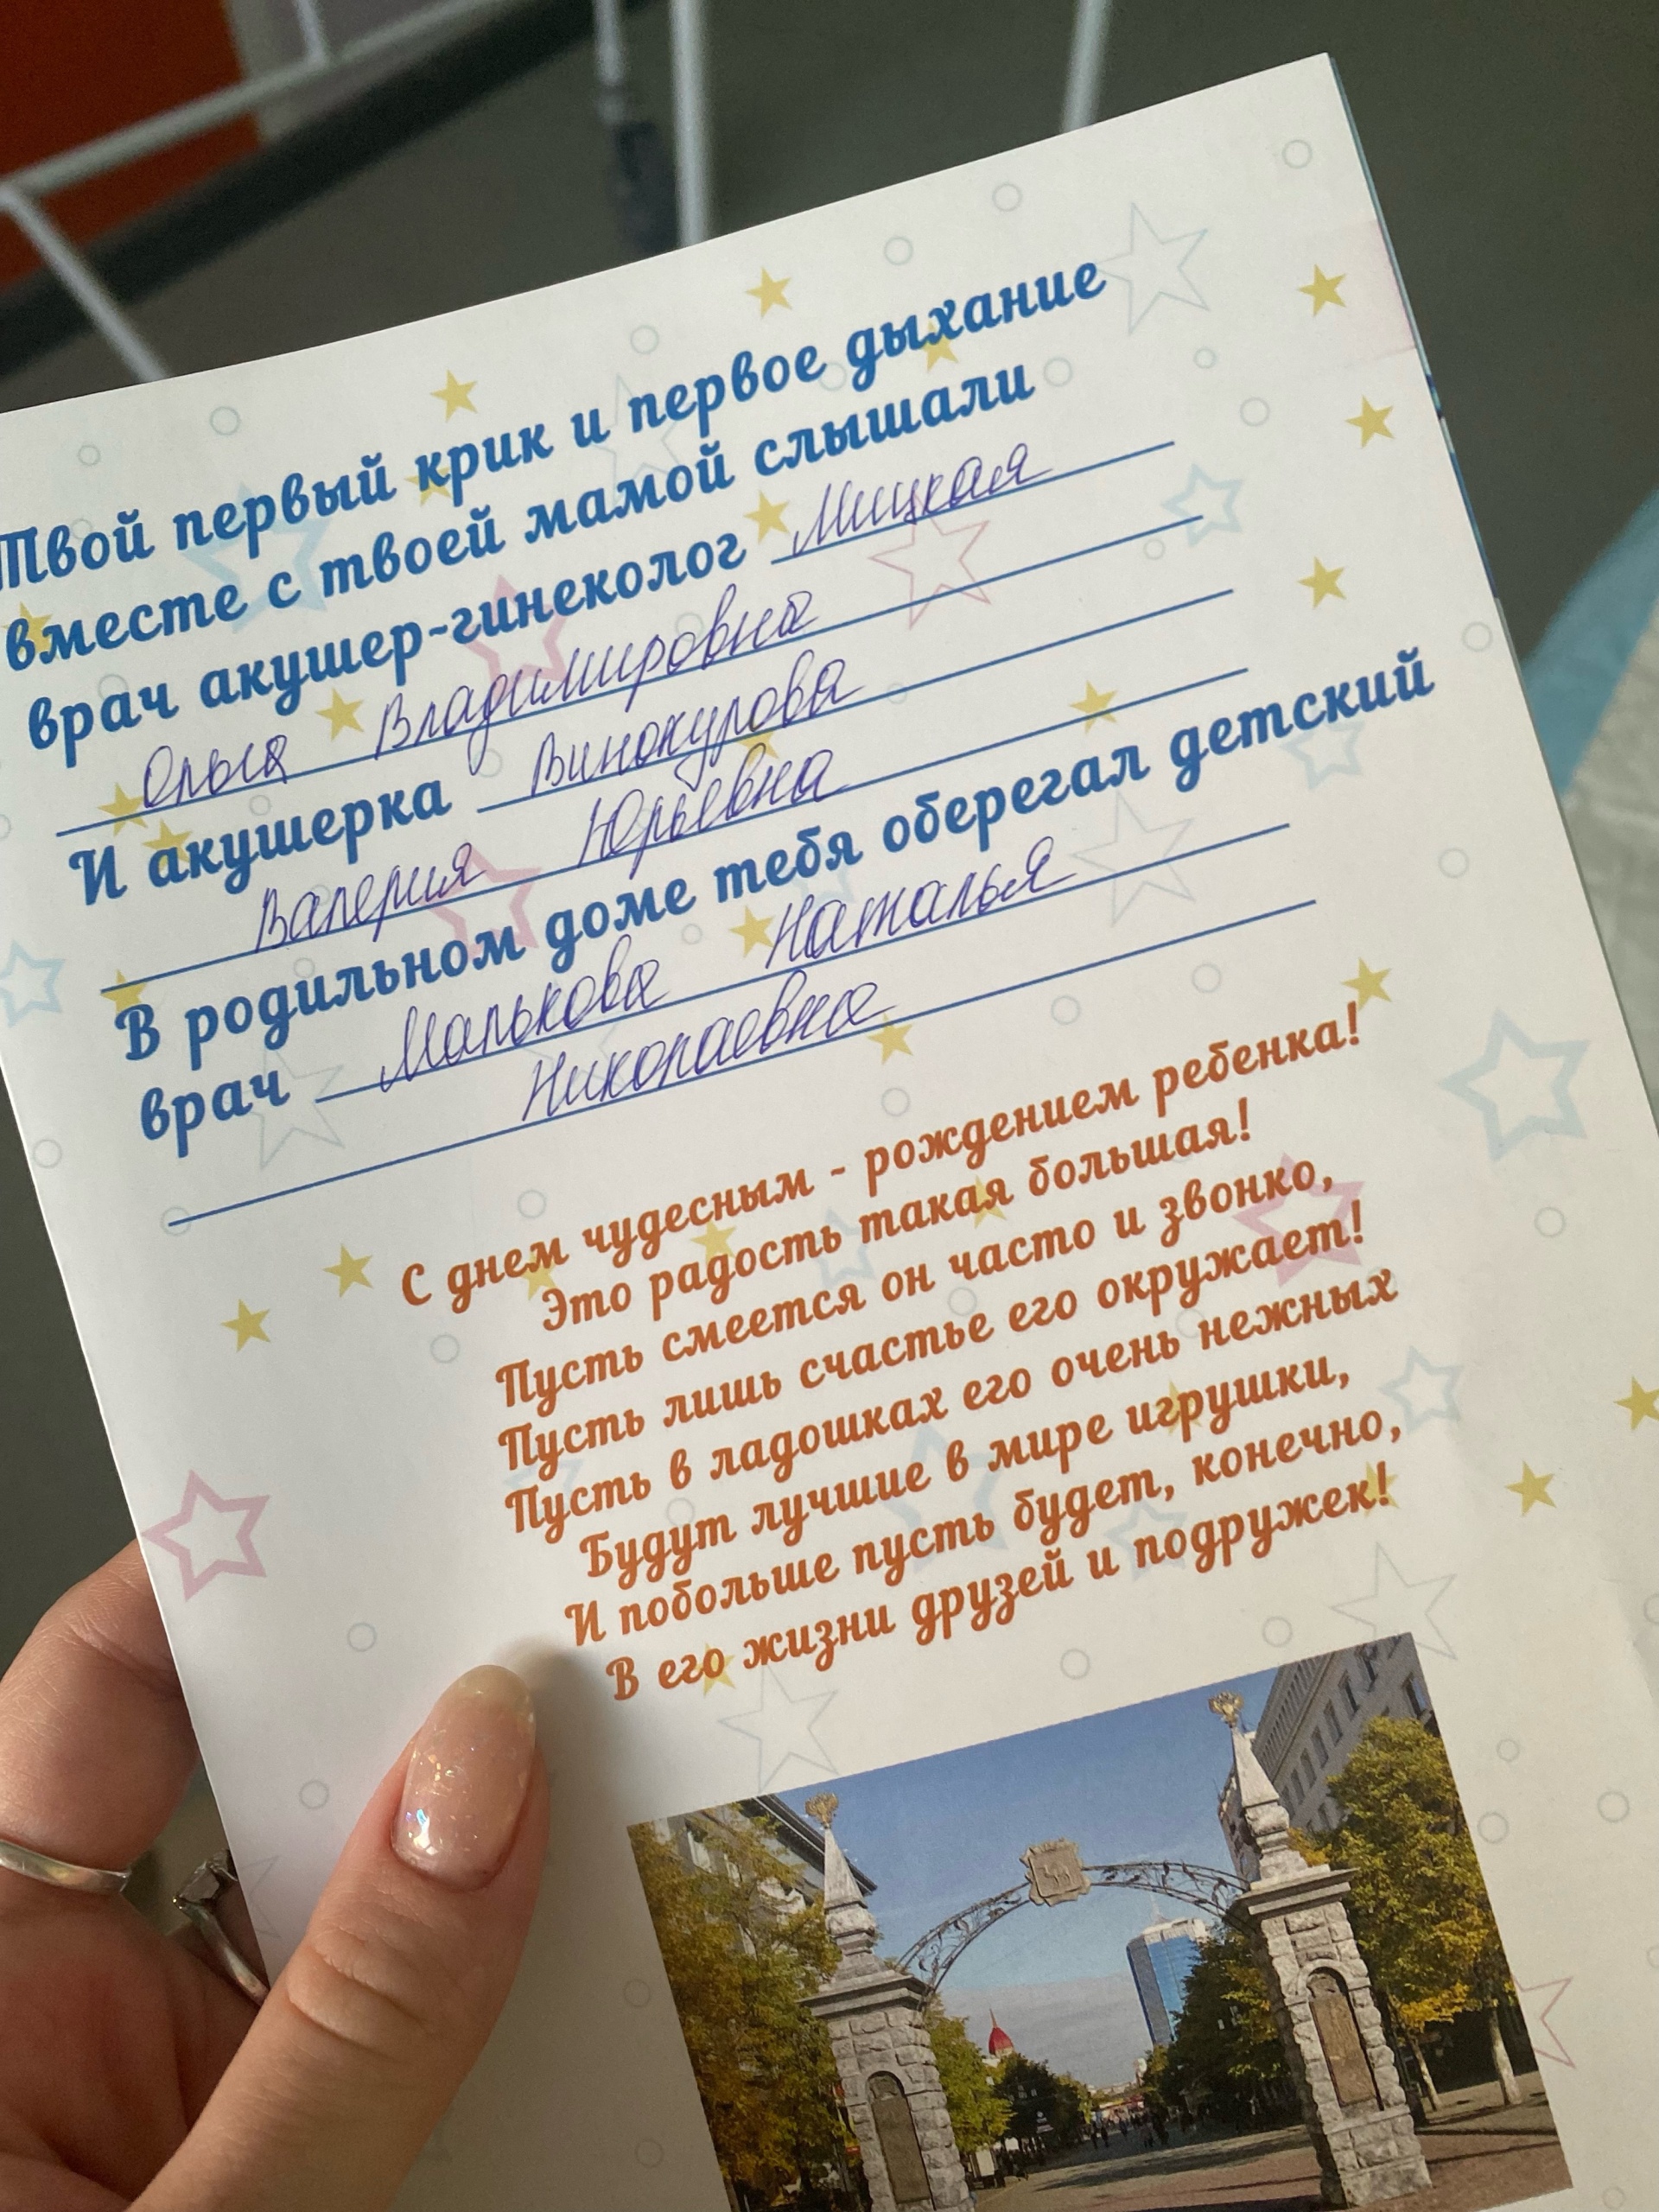 Твой первый крик и первое дыхание
вместе с твоей мамой слышали
врач акушер-гинеколог Мицкая
Ольга Владимировна
И акушерка Винокурова
Валерия Юрьевна
В родильном доме тебя оберегал детский
врач Малькова Наталья
Николаевна
С днем чудесным - рождением ребенка!
Это радость такая большая!
Пусть смеется он часто и звонко,
Пусть лишь счастье его окружает!
Пусть в ладошках его очень нежных
Будут лучшие в мире игрушки,
И побольше пусть будет, конечно,
В его жизни друзей и подружек!